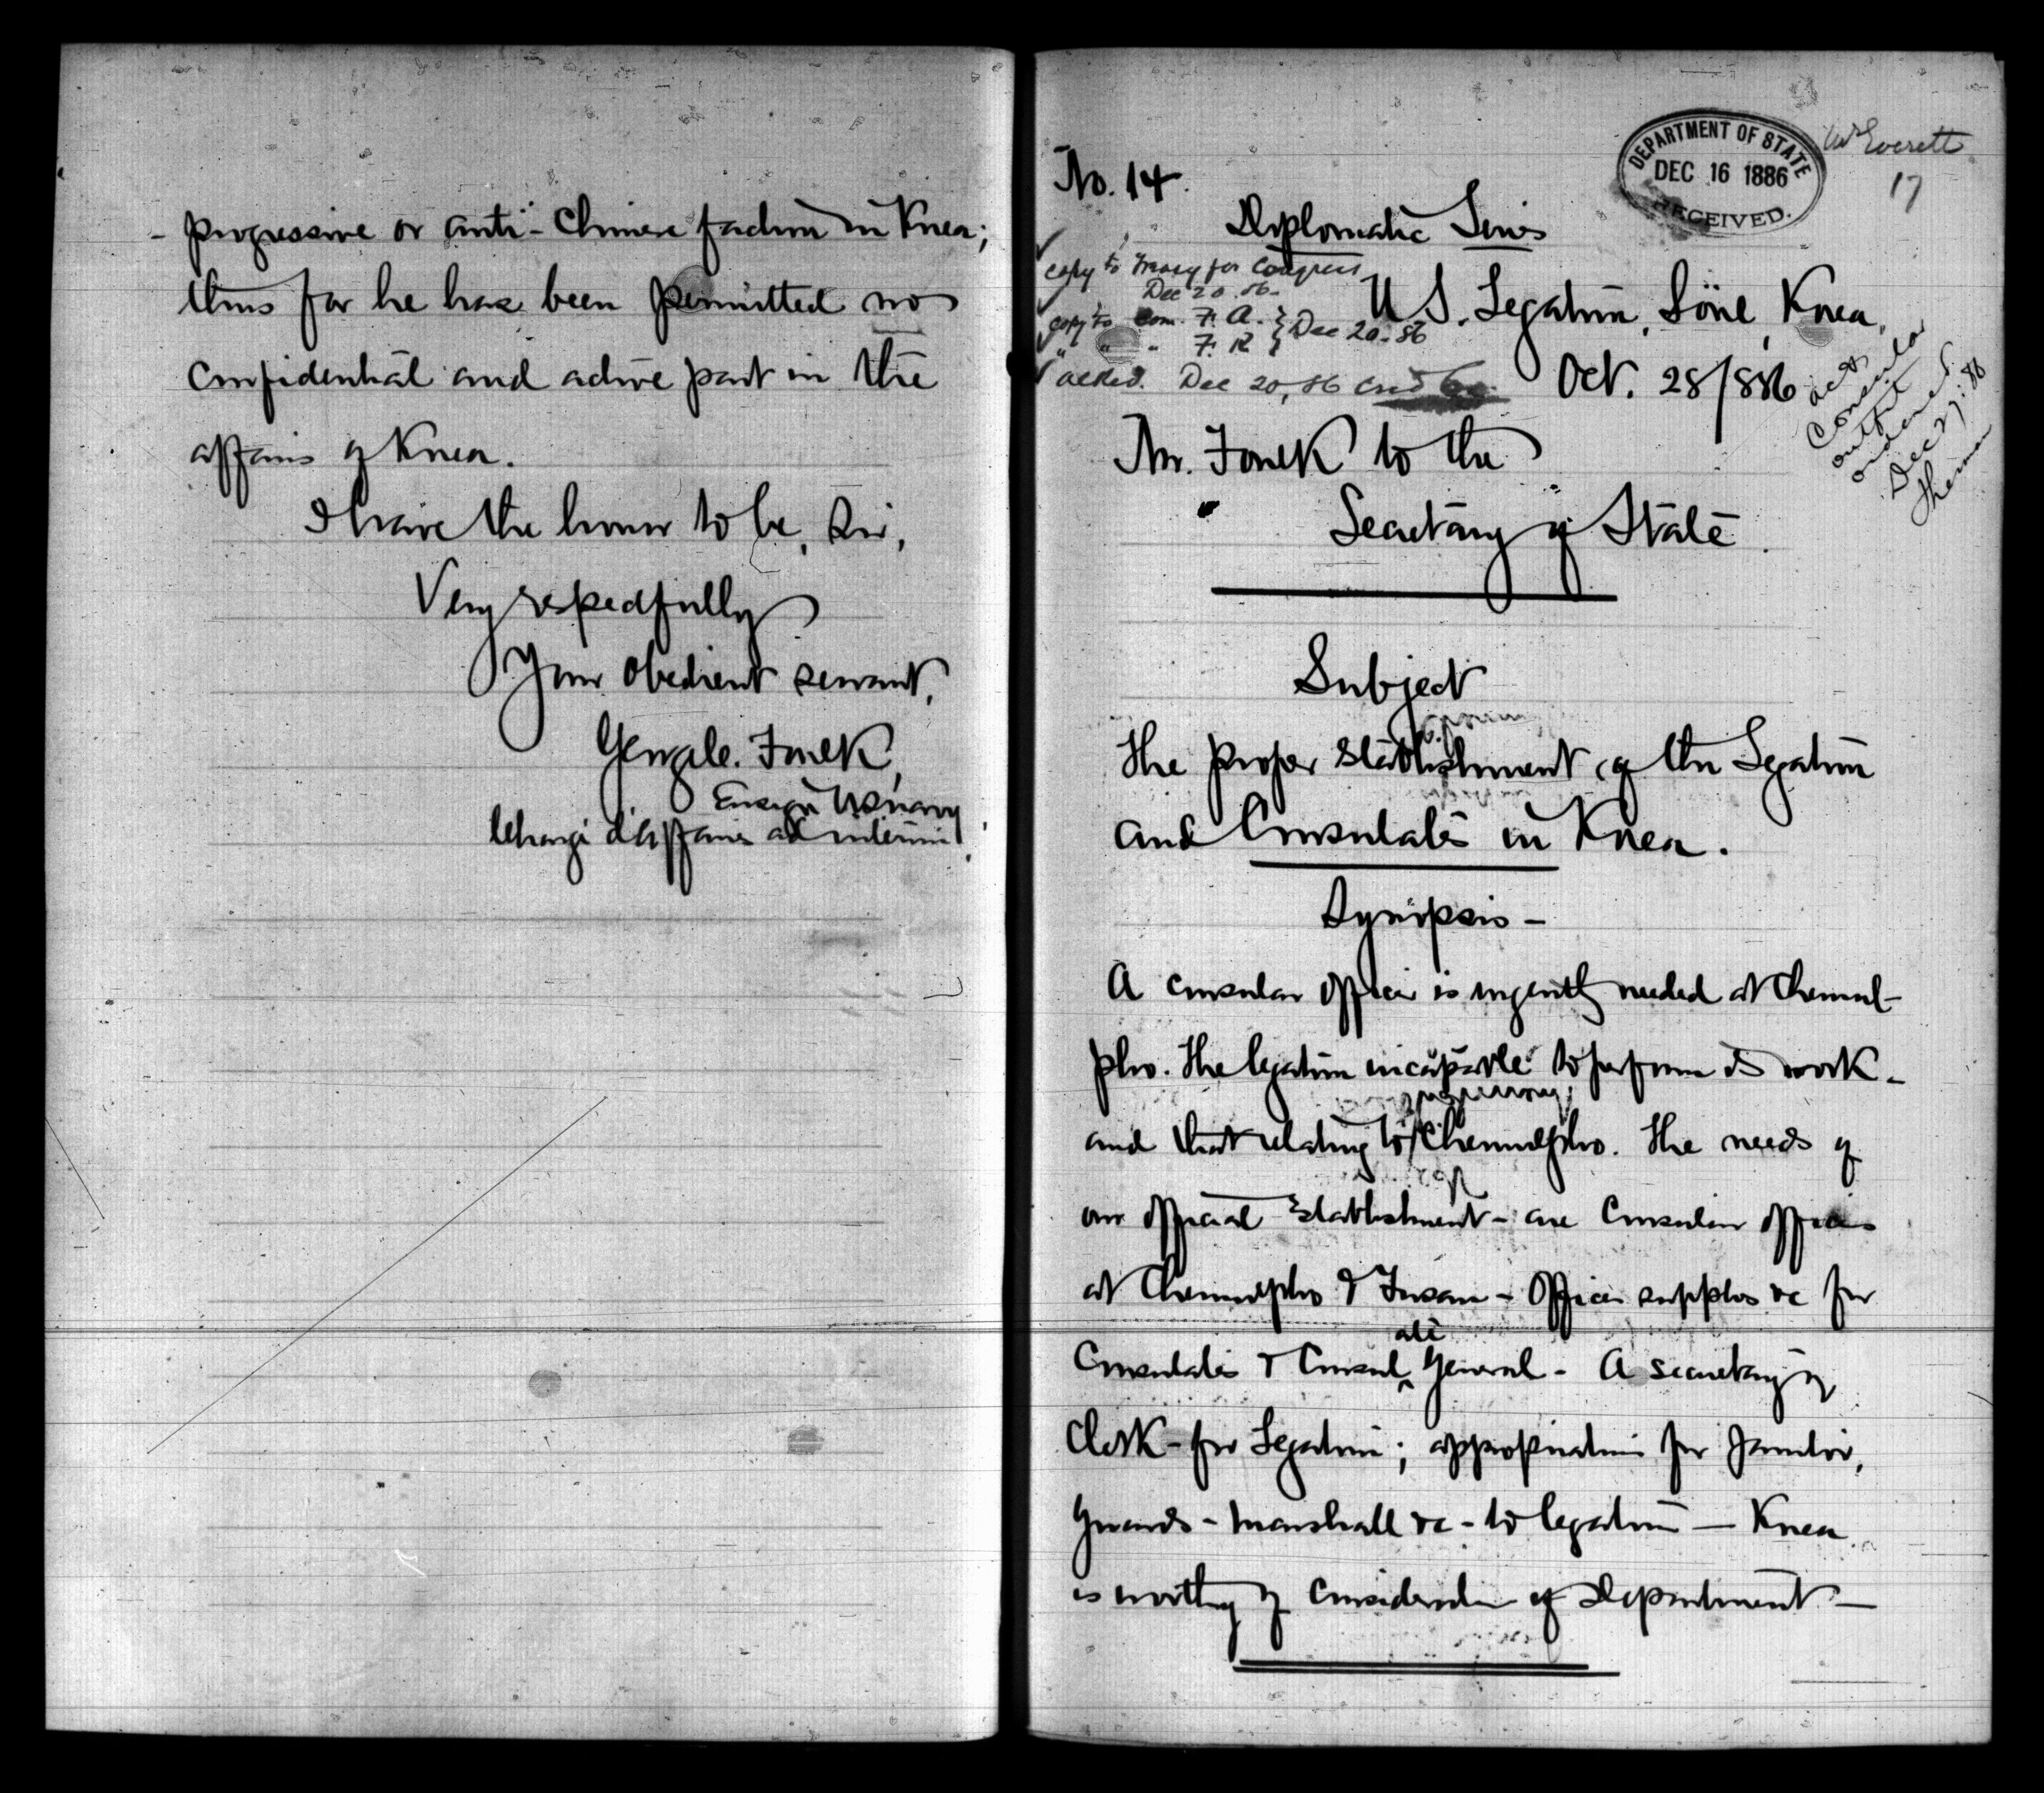 progressive or anti-Chinese faction in Korea;
thus far he has been permitted no
confidential and active part in the
affairs of Korea.
I have the honor to be, Sir,
Very respectfully
Your obedient servant,
George C. Foulk,
Ensign U S Navy
Chargé d'Affaires ad interim.
DEPARTMENT OF STATE
DEC 16 1886
RECEIVED.
Mr Everett
17
No. 14.
Diplomatic Series
copy to Treasy for Congress
Dec 20. 86.
copy to Com. F. A. } Dec 20. 86
" " " F. R }
acked. Dec 20, 86
U. S. Legation, Söul, Korea,
Oct. 28/886
Consular
outfit
ordered
Dec 27. 86
Mr. Foulk to the
Secretary of State.
Subject
The proper establishment of the Legation
and Consulates in Korea.
Synopsis -
A consular officer is urgently needed at Chemul-
pho. The legation incapable to perform its work -
and that relating to Chemulpho. The needs of
our official establishment - are Consular officers
at Chemulpho & Fusan - Office supplies &c for
Consulates & Consulate General - A secretary or
Clerk - for Legation; appropriation for janitor,
guards - marshall &c - to legation — Korea
is worthy of consideration of Department —